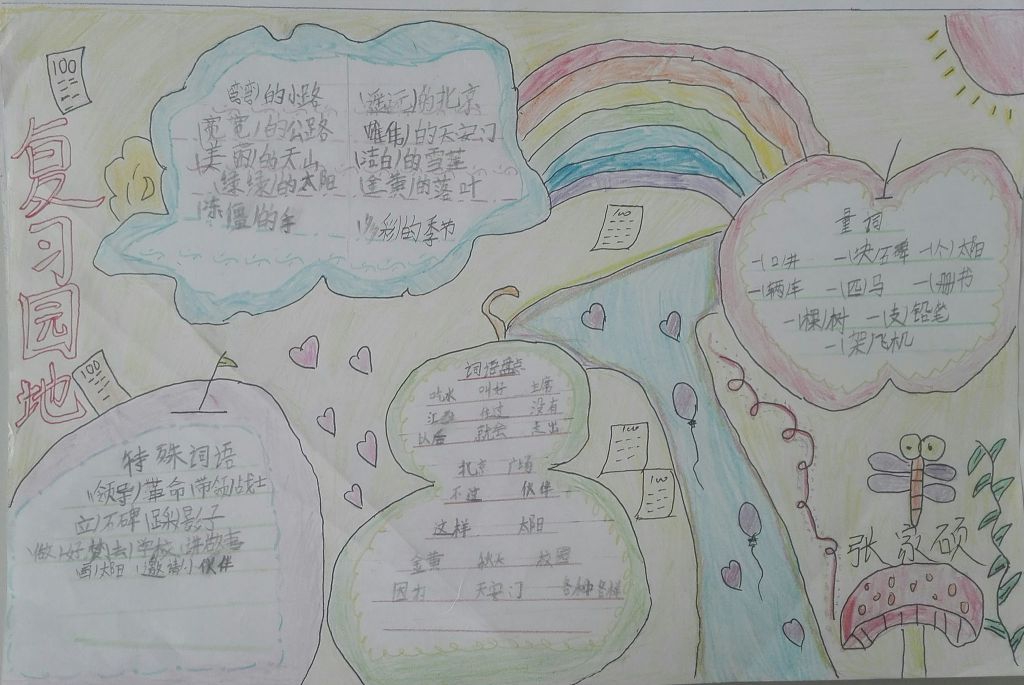 复习园地
100
(弯弯)的小路
(宽宽)的公路
(美丽)的天山
(绿绿)的太阳
(冻僵)的手
(遥远)的北京
(雄伟)的天安门
(洁白)的雪莲
(金黄)的落叶
(多彩)的季节
100
量词
一(口)井 一(块)石碑 一(个)太阳
一(辆)车 一(匹)马 一(册)书
一(棵)树 一(支)铅笔
一(架)飞机
100
特殊词语
(领导)革命 (带领)战士
(立)石碑 (踩)影子
(做)好梦 (去)学校 (讲)故事
(画)太阳 (邀请)伙伴
词语盘点
吃水 叫好 主席
江 住过 没有
以后 就会 走出
北京 广场
不过 伙伴
这样 太阳
金黄 秋天 校园
因为 天安门 各种各样
100
100
张家硕